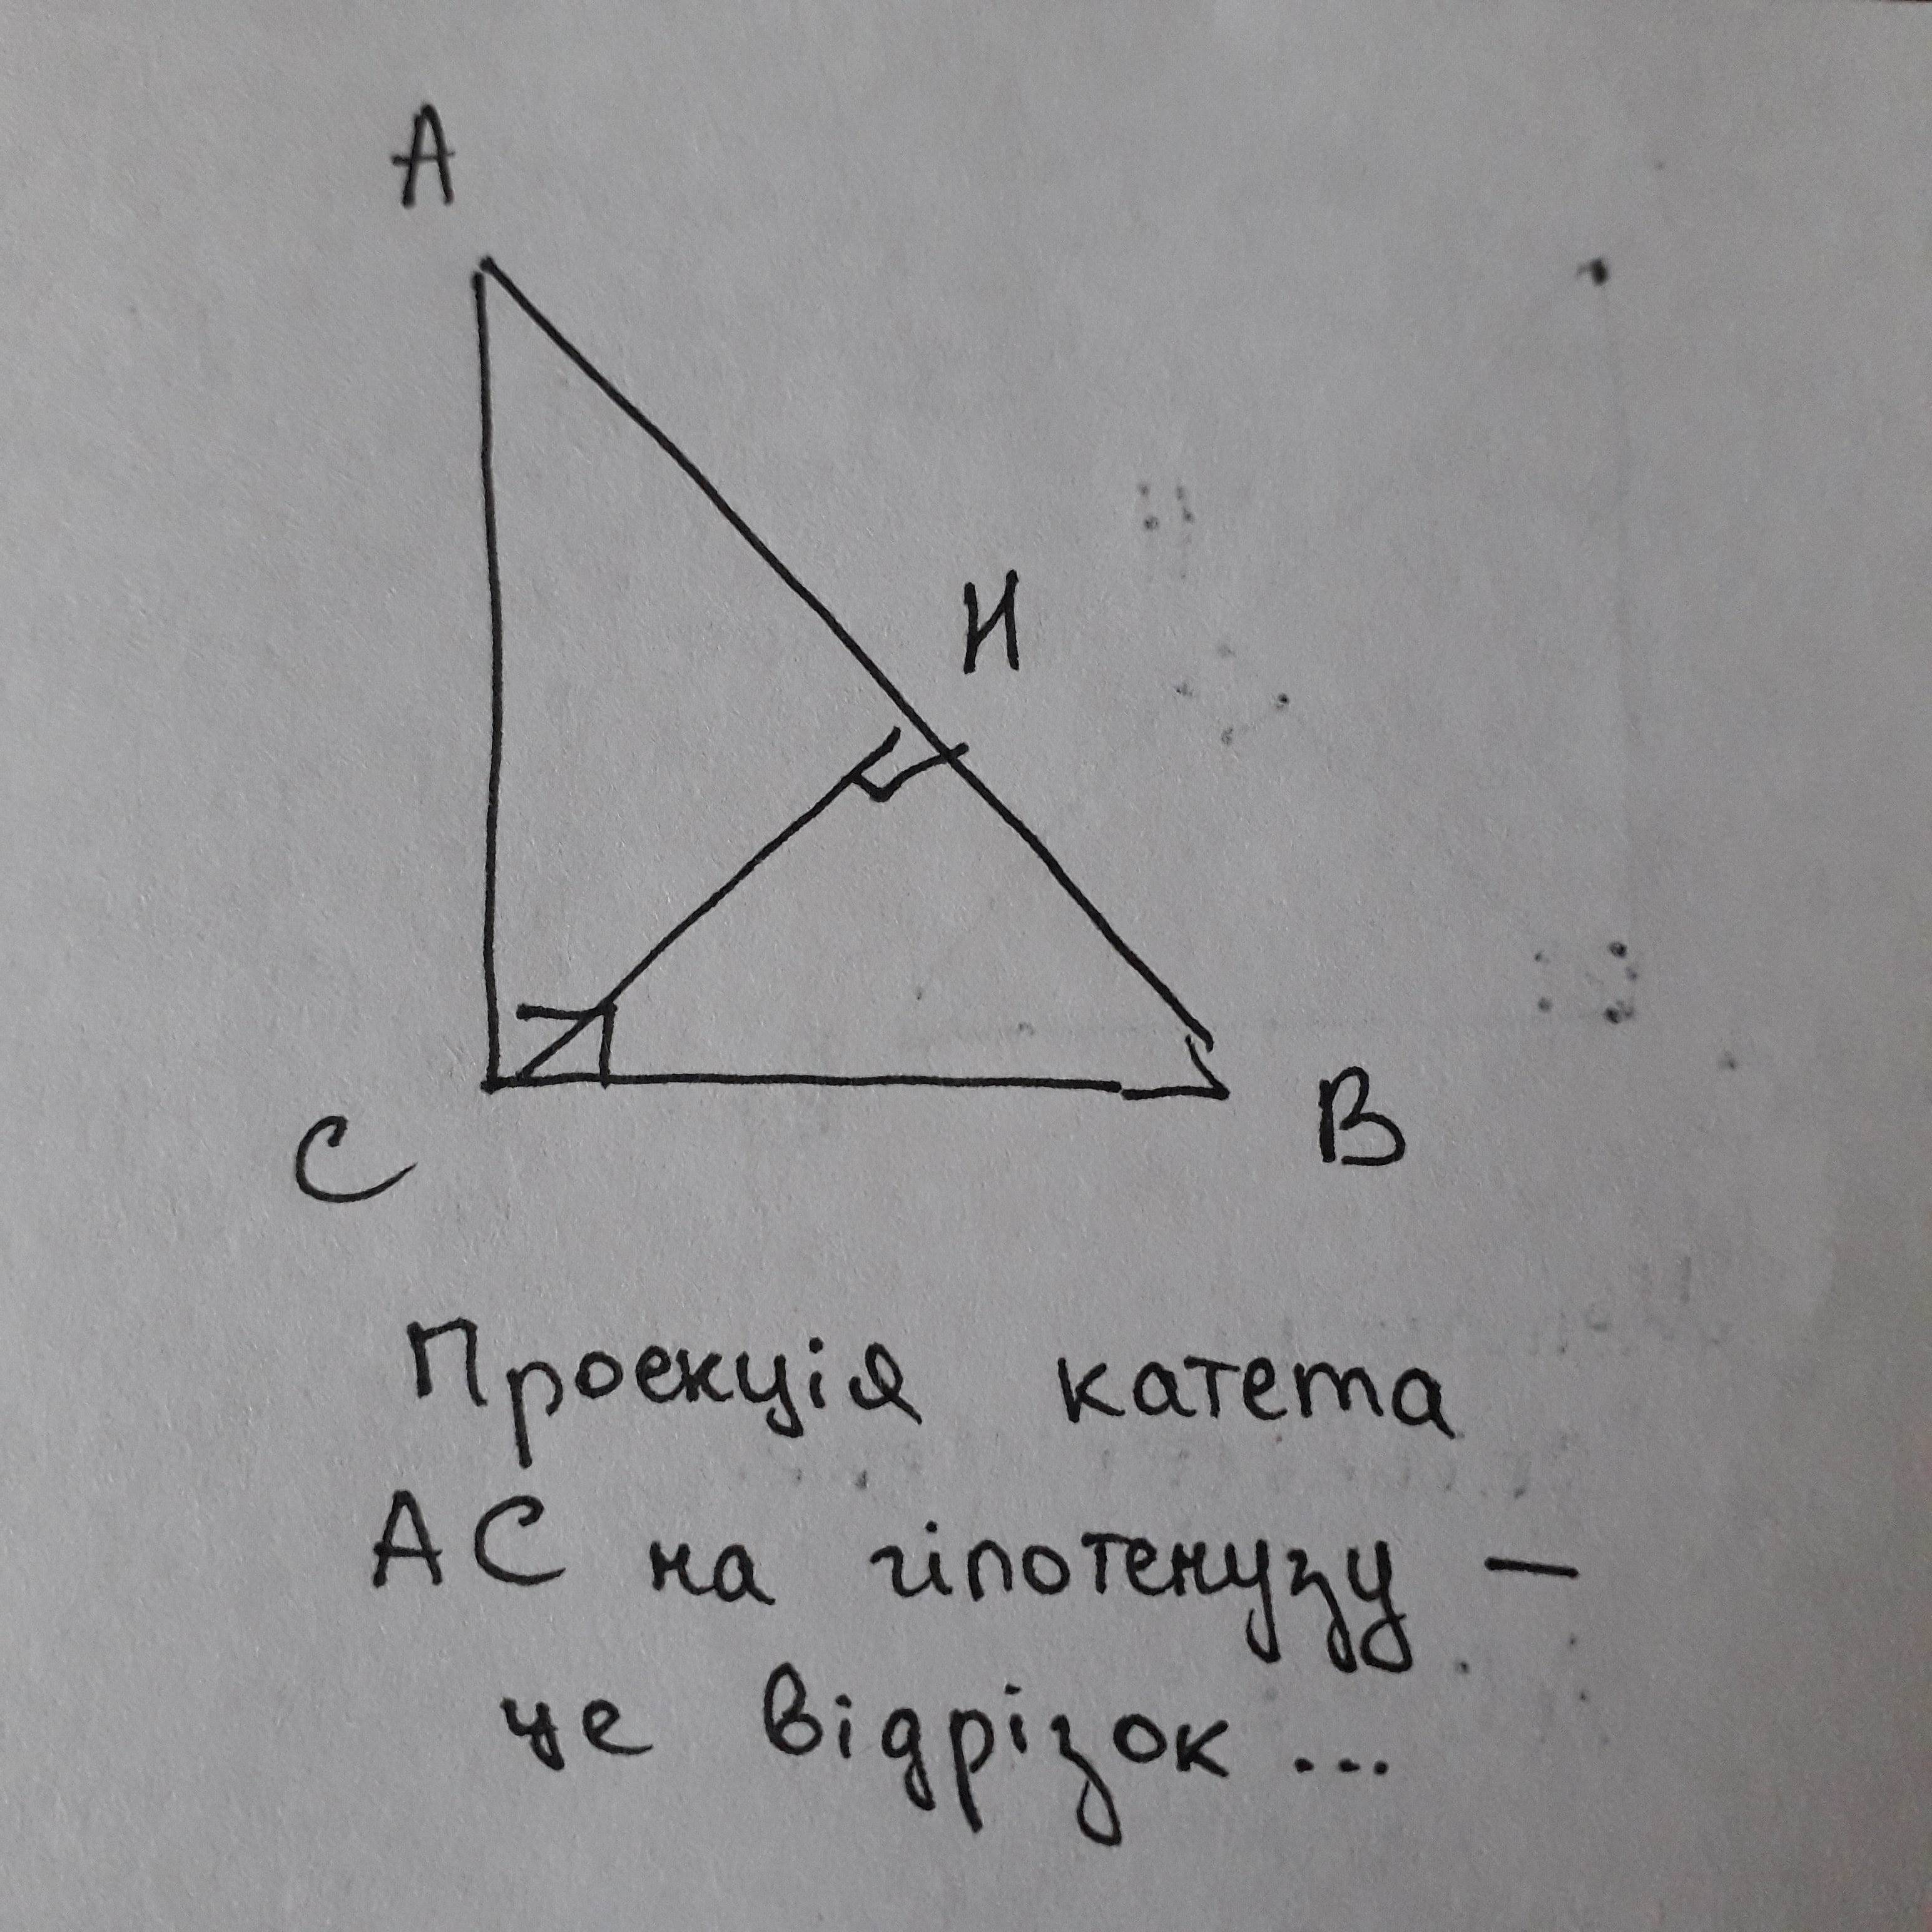 А
Н
С
В
Проекція катета
АС на гіпотенузу —
це відрізок ...